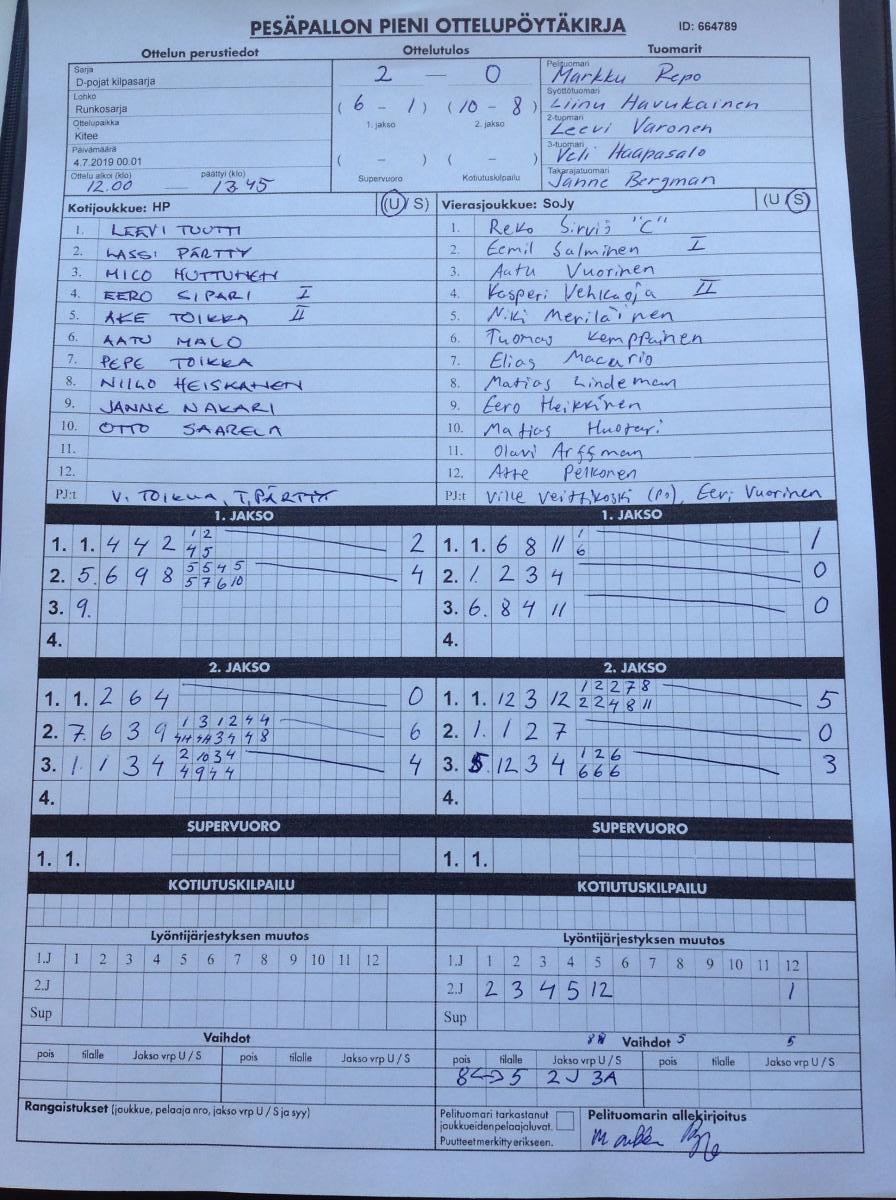 PESÄPALLON PIENI OTTELUPÖYTÄKIRJA ID: 664789
Ottelun perustiedot Ottelutulos Tuomarit
Sarja
D-pojat kilpasarja
Lohko
Runkosarja
Ottelupaikka
Kitee
Päivämäärä
4.7.2019 00.01
Ottelu alkoi (klo) päättyi (klo)
12.00 13.45
2 — 0
( 6 - 1 ) ( 10 - 8 )
1. jakso 2. jakso
( - ) ( - )
Supervuoro Kotiutuskilpailu
Pelituomari
Markku Repo
Syöttötuomari
Liinu Havukainen
2-tuomari
Leevi Varonen
3-tuomari
Veli Haapasalo
Takarajatuomari
Janne Bergman
Kotijoukkue: HP (U / S)
1. LEEVI TUUTTI
2. LASSI PÄRTTY
3. MICO HUTTUNEN
4. EERO SIPARI I
5. AKE TOIKKA II
6. AATU MALO
7. PEPE TOIKKA
8. NIILO HEISKANEN
9. JANNE NAKARI
10. OTTO SAARELA
11.
12.
PJ:t V. TOIKKA, T. PÄRTTY
Vierasjoukkue: SoJy (U / S)
1. Reko Sirviö "C"
2. Eemil Salminen I
3. Aatu Vuorinen
4. Kasperi Vehkaoja II
5. Niki Meriläinen
6. Tuomas Kemppainen
7. Elias Macario
8. Matias Lindeman
9. Eero Heikkinen
10. Matias Huotari
11. Olavi Arffman
12. Atte Pelkonen
PJ:t Ville Veittikoski (PJ), Eevi Vuorinen
1. JAKSO
1. 1. 4 4 2 1 2 2
4 5
2. 5. 6 9 8 5 5 4 5 4
5 7 6 10
3. 9.
4.
1. JAKSO
1. 1. 6 8 11 1 1
6
2. 1. 2 3 4 0
3. 6. 8 4 11 0
4.
2. JAKSO
1. 1. 2 6 4 0
2. 7. 6 3 9 1 3 1 2 4 4 6
3 4 4 8
3. 1. 1 3 4 2 10 3 4 4
4 9 4 4
4.
2. JAKSO
1. 1. 12 3 12 1 2 2 7 8 5
2 2 4 8 11
2. 1. 1 2 7 0
3. 5. 12 3 4 1 2 6 3
6 6 6
4.
SUPERVUORO
1. 1.
SUPERVUORO
1. 1.
KOTIUTUSKILPAILU
KOTIUTUSKILPAILU
Lyöntijärjestyksen muutos
1.J 1 2 3 4 5 6 7 8 9 10 11 12
2.J
Sup
Lyöntijärjestyksen muutos
1.J 1 2 3 4 5 6 7 8 9 10 11 12
2.J 2 3 4 5 12 1
Sup
Vaihdot
pois tilalle Jakso vrp U / S pois tilalle Jakso vrp U / S
Vaihdot 5 5
pois tilalle Jakso vrp U / S pois tilalle Jakso vrp U / S
8 <-> 5 2J 3A
Rangaistukset (joukkue, pelaaja nro, jakso vrp U / S ja syy)
Pelituomari tarkastanut
joukkueiden pelaajaluvat.
Puutteet merkitty erikseen.
Pelituomarin allekirjoitus